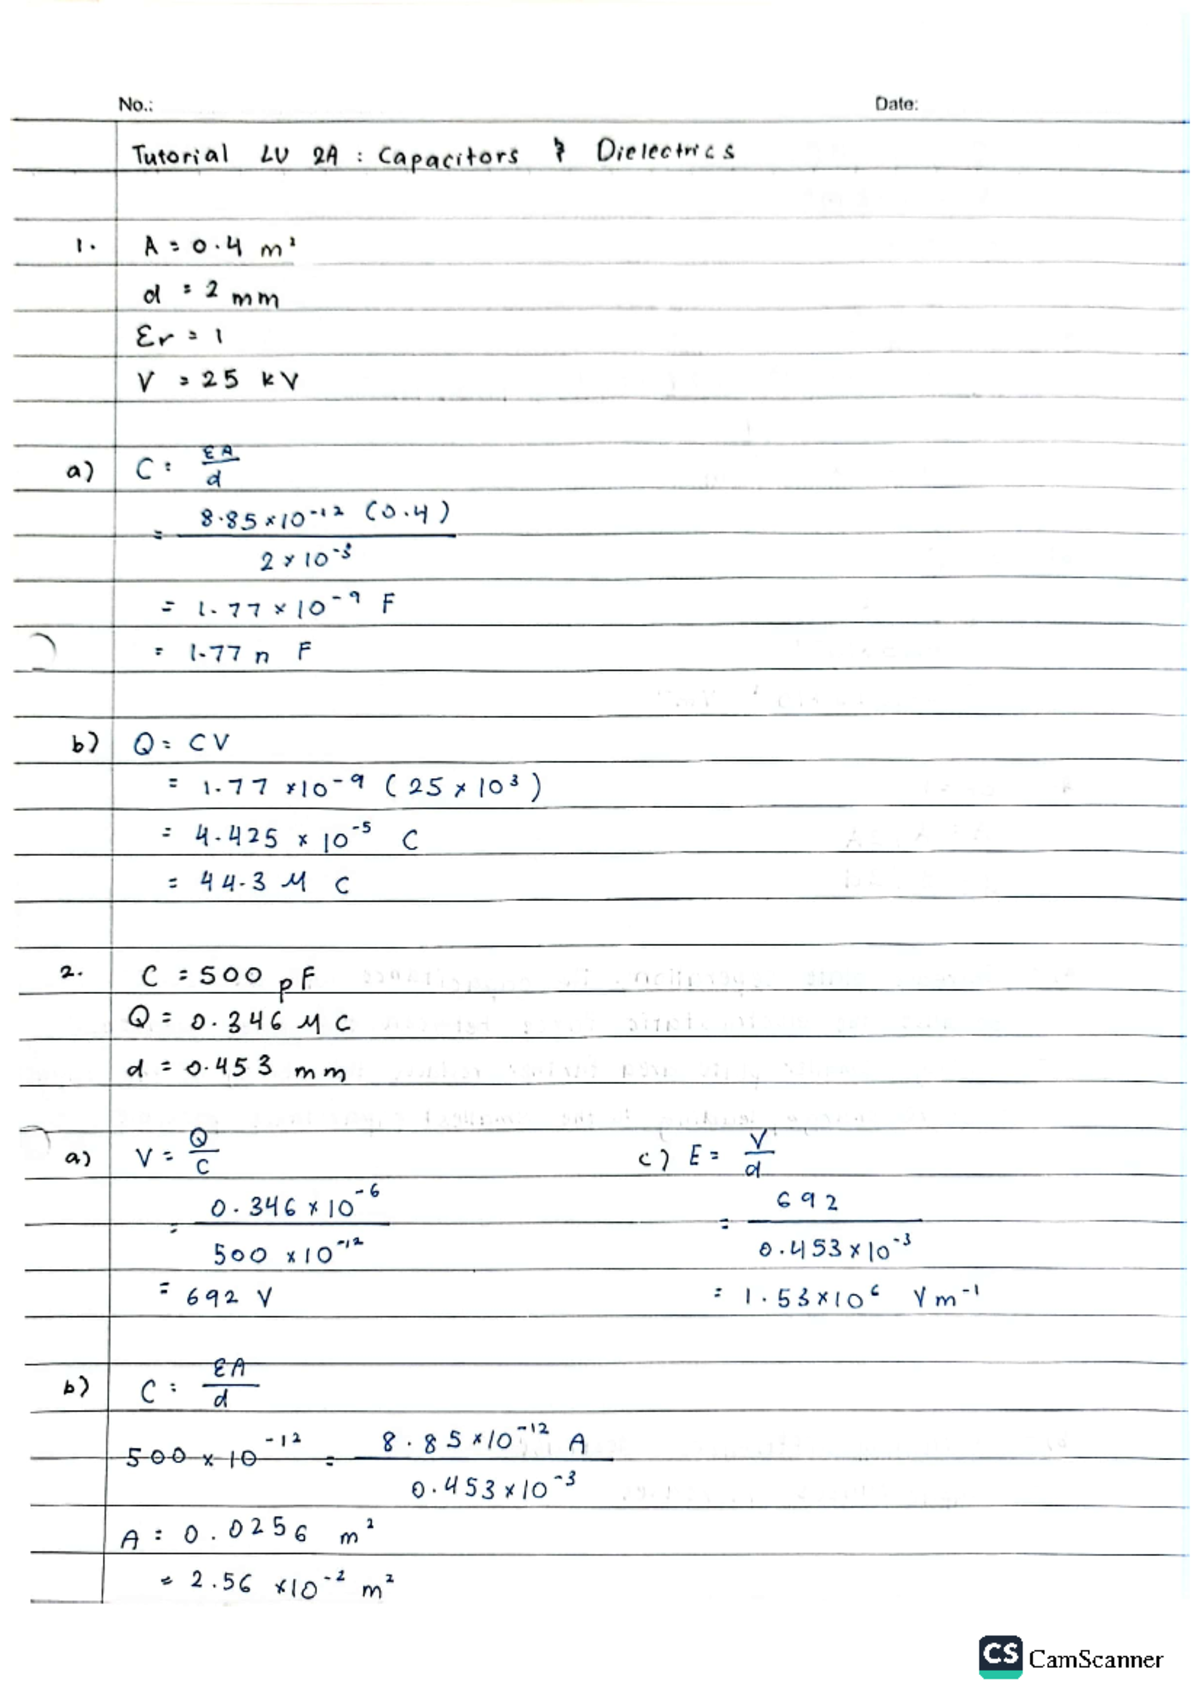 No.: Date:
Tutorial LU 2A : Capacitors & Dielectrics
1. A = 0.4 m²
d = 2 mm
Er = 1
V = 25 kV
a) C = εA / d
= 8.85×10⁻¹² (0.4) / 2×10⁻³
= 1.77×10⁻⁹ F
= 1.77 n F
b) Q = CV
= 1.77 ×10⁻⁹ (25 × 10³)
= 4.425 × 10⁻⁵ C
= 44.3 μ C
2. C = 500 pF
Q = 0.346 μ C
d = 0.453 mm
a) V = Q / C
= 0.346 × 10⁻⁶ / 500 ×10⁻¹²
= 692 V
c) E = V / d
= 692 / 0.453×10⁻³
= 1.53×10⁶ Vm⁻¹
b) C = εA / d
500 × 10⁻¹² = 8.85×10⁻¹² A / 0.453×10⁻³
A = 0.0256 m²
= 2.56 ×10⁻² m²
CS CamScanner